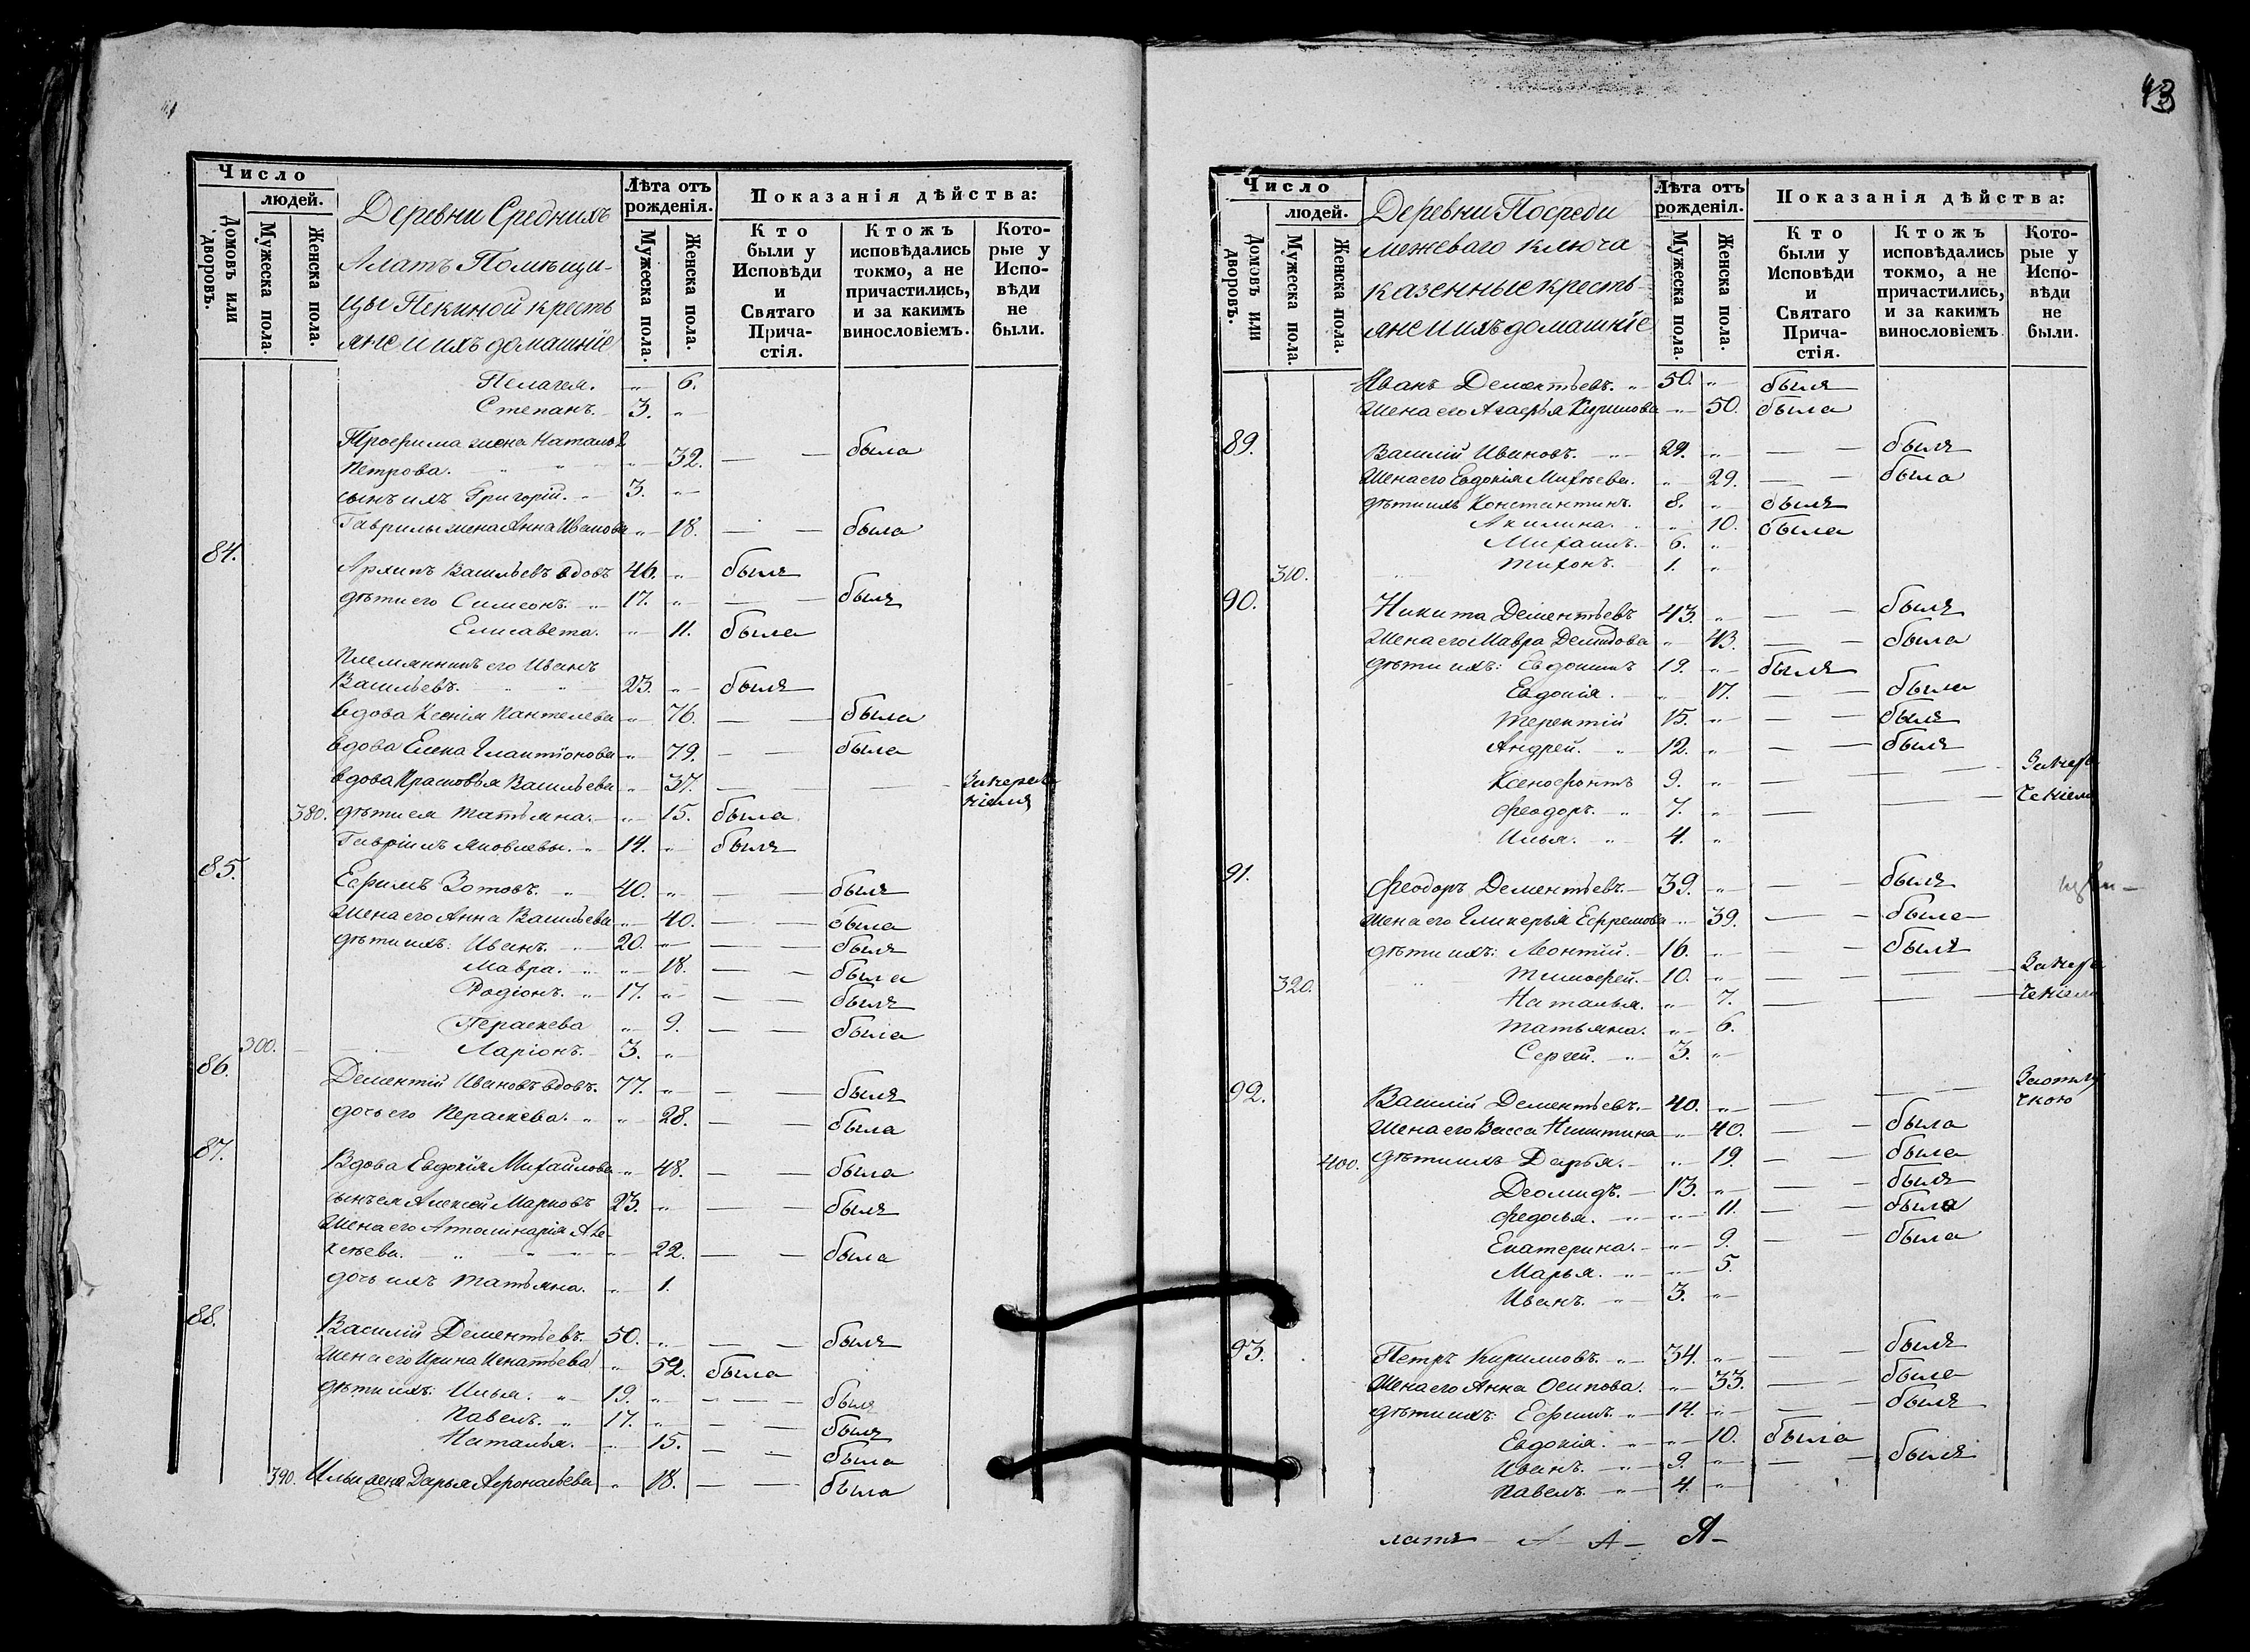 Число
людей.
Домовъ или дворовъ.
Мужеска пола.
Женска пола.
Деревни Среднихъ
Алатъ Помѣщи-
цы Пекиной кресть
яне и ихъ домашніе
Лѣта отъ рожденія.
Мужеска пола.
Женска пола.
Показанія дѣйства:
Кто были у Исповѣди и Святаго Прича-стія.
Ктожъ исповѣдались токмо, а не причастились, и за какимъ винословіемъ.
Кото-рые у Испо-вѣди не были.
Пелагея. „ 6.
Степанъ. 3. „
Трофима жена Наталья
Петрова. „ „ „ 32. — — была
сынъ ихъ Григорій. 3. „
Гаврилы жена Анна Иванова „ 18. — — была
84.
Архипъ Васильевъ вдовъ 46. „ былъ
дѣти его Симеонъ. 17. „ — — былъ
Елисавета. „ 11. была
племянникъ его Иванъ
Васильевъ. 23. „ былъ
вдова Ксенія Пантелева „ 76. — — была
вдова Елена Галактіонова „ 79. — — была
вдова Прасковья Васильева „ 37. — — —
380. дѣти ея Татьяна. „ 15. была
Гавріилъ Яковлевы. 14. „ былъ
85.
Ефимъ Зотовъ. 40. „ — — былъ
Жена его Анна Васильева „ 40. — — была
дѣти ихъ: Иванъ. 20. „ — — былъ
Мавра. „ 18. — — была
Родіонъ. 17. „ — — былъ
Параскева „ 9. — — была
300. Ларіонъ. 3. „
86.
Дементій Ивановъ вдовъ. 77. „ — — былъ
дочь его Параскева. „ 28. — — была
87.
Вдова Евдокія Михайлова „ 48. — — была
сынъ ея Алексей Марковъ 23. „ — — былъ
Жена его Аполинарія Але-
ксѣева. „ 22. — — была
дочь ихъ Татьяна. „ 1.
88.
Василій Дементьевъ. 50. „ — — былъ
Жена его Ирина Игнатьева „ 52. была
дѣти ихъ: Илья. 19. „ — — былъ
Павелъ. 17. „ — — былъ
Наталья. „ 15. — — была
390. Ильи жена Дарья Афонасьева „ 18. — — была
43
Число
людей.
Домовъ или дворовъ.
Мужеска пола.
Женска пола.
Деревни Посреди
межеваго ключа
казенные кресть-
яне и ихъ домашніе
Лѣта отъ рожденія.
Мужеска пола.
Женска пола.
Показанія дѣйства:
Кто были у Исповѣди и Святаго Прича-стія.
Ктожъ исповѣдались токмо, а не причастились, и за какимъ винословіемъ.
Кото-рые у Испо-вѣди не были.
Иванъ Дементьевъ. 50. „ былъ
Жена его Агафья Кирилова „ 50. была
89.
Василій Ивановъ. 29. „ — — былъ
Жена его Евдокія Михѣева. „ 29. — — была
дѣти ихъ Константинъ. 8. „ былъ
Акилина. „ 10. была
Михаилъ. 6. „
310. Тихонъ. 1. „
90.
Никита Дементьевъ 43. „ — — былъ
Жена его Мавра Демидова „ 43. — — была
дѣти ихъ: Евдокимъ 19. „ былъ
Евдокія. „ 17. — — была
Терентій 15. „ — — былъ
Андрей. 12. „ — — былъ
Ксенофонтъ 9. „ — — —
Феодоръ. 7. „ — — —
Илья. 4. „
91.
Феодоръ Дементьевъ. 39. „ — — былъ
Жена его Гликерья Ефремова „ 39. — — была
дѣти ихъ: Леонтій. 16. „ — — былъ
320. Тимофей. 10. „ — — —
Наталья. „ 7. — — —
Татьяна. „ 6.
Сергей. 3. „
92.
Василій Дементьевъ. 40. „ — — — За отлу
чкою
Жена его Васса Никитина „ 40. — — была
400. дѣти ихъ Дарья. „ 19. — — была
Деомидъ. 13. „ — — былъ
Федосья. „ 11. — — была
Екатерина. „ 9. — — была
Марья. „ 5.
Иванъ. 3. „
93.
Петръ Кириловъ. 34. „ — — былъ
Жена его Анна Осипова. „ 33. — — была
дѣти ихъ: Ефимъ. 14. „ — — былъ
Евдокія. „ 10. была
Иванъ. 9. „ — — былъ
Павелъ. 4. „